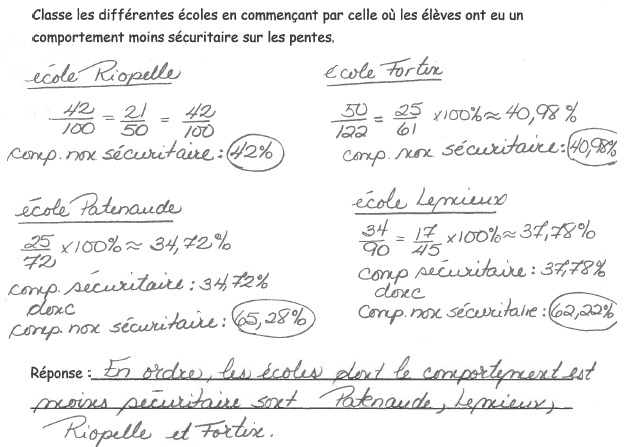 Classe les différentes écoles en commençant par celle où les élèves ont eu un
comportement moins sécuritaire sur les pentes.
école Riopelle
42/100 = 21/50 = 42/100
comp. non sécuritaire : 42%
école Fortin
50/122 = 25/61 x100% ≈ 40,98 %
comp. non sécuritaire : 40,98%
école Patenaude
25/72 x100% ≈ 34,72%
comp. sécuritaire : 34,72%
donc
comp. non sécuritaire : 65,28%
école Lemieux
34/90 = 17/45 x100% ≈ 37,78%
comp sécuritaire : 37,78%
donc
comp. non sécuritaire : 62,22%
Réponse : En ordre, les écoles dont le comportement est
moins sécuritaire sont Patenaude, Lemieux,
Riopelle et Fortin.